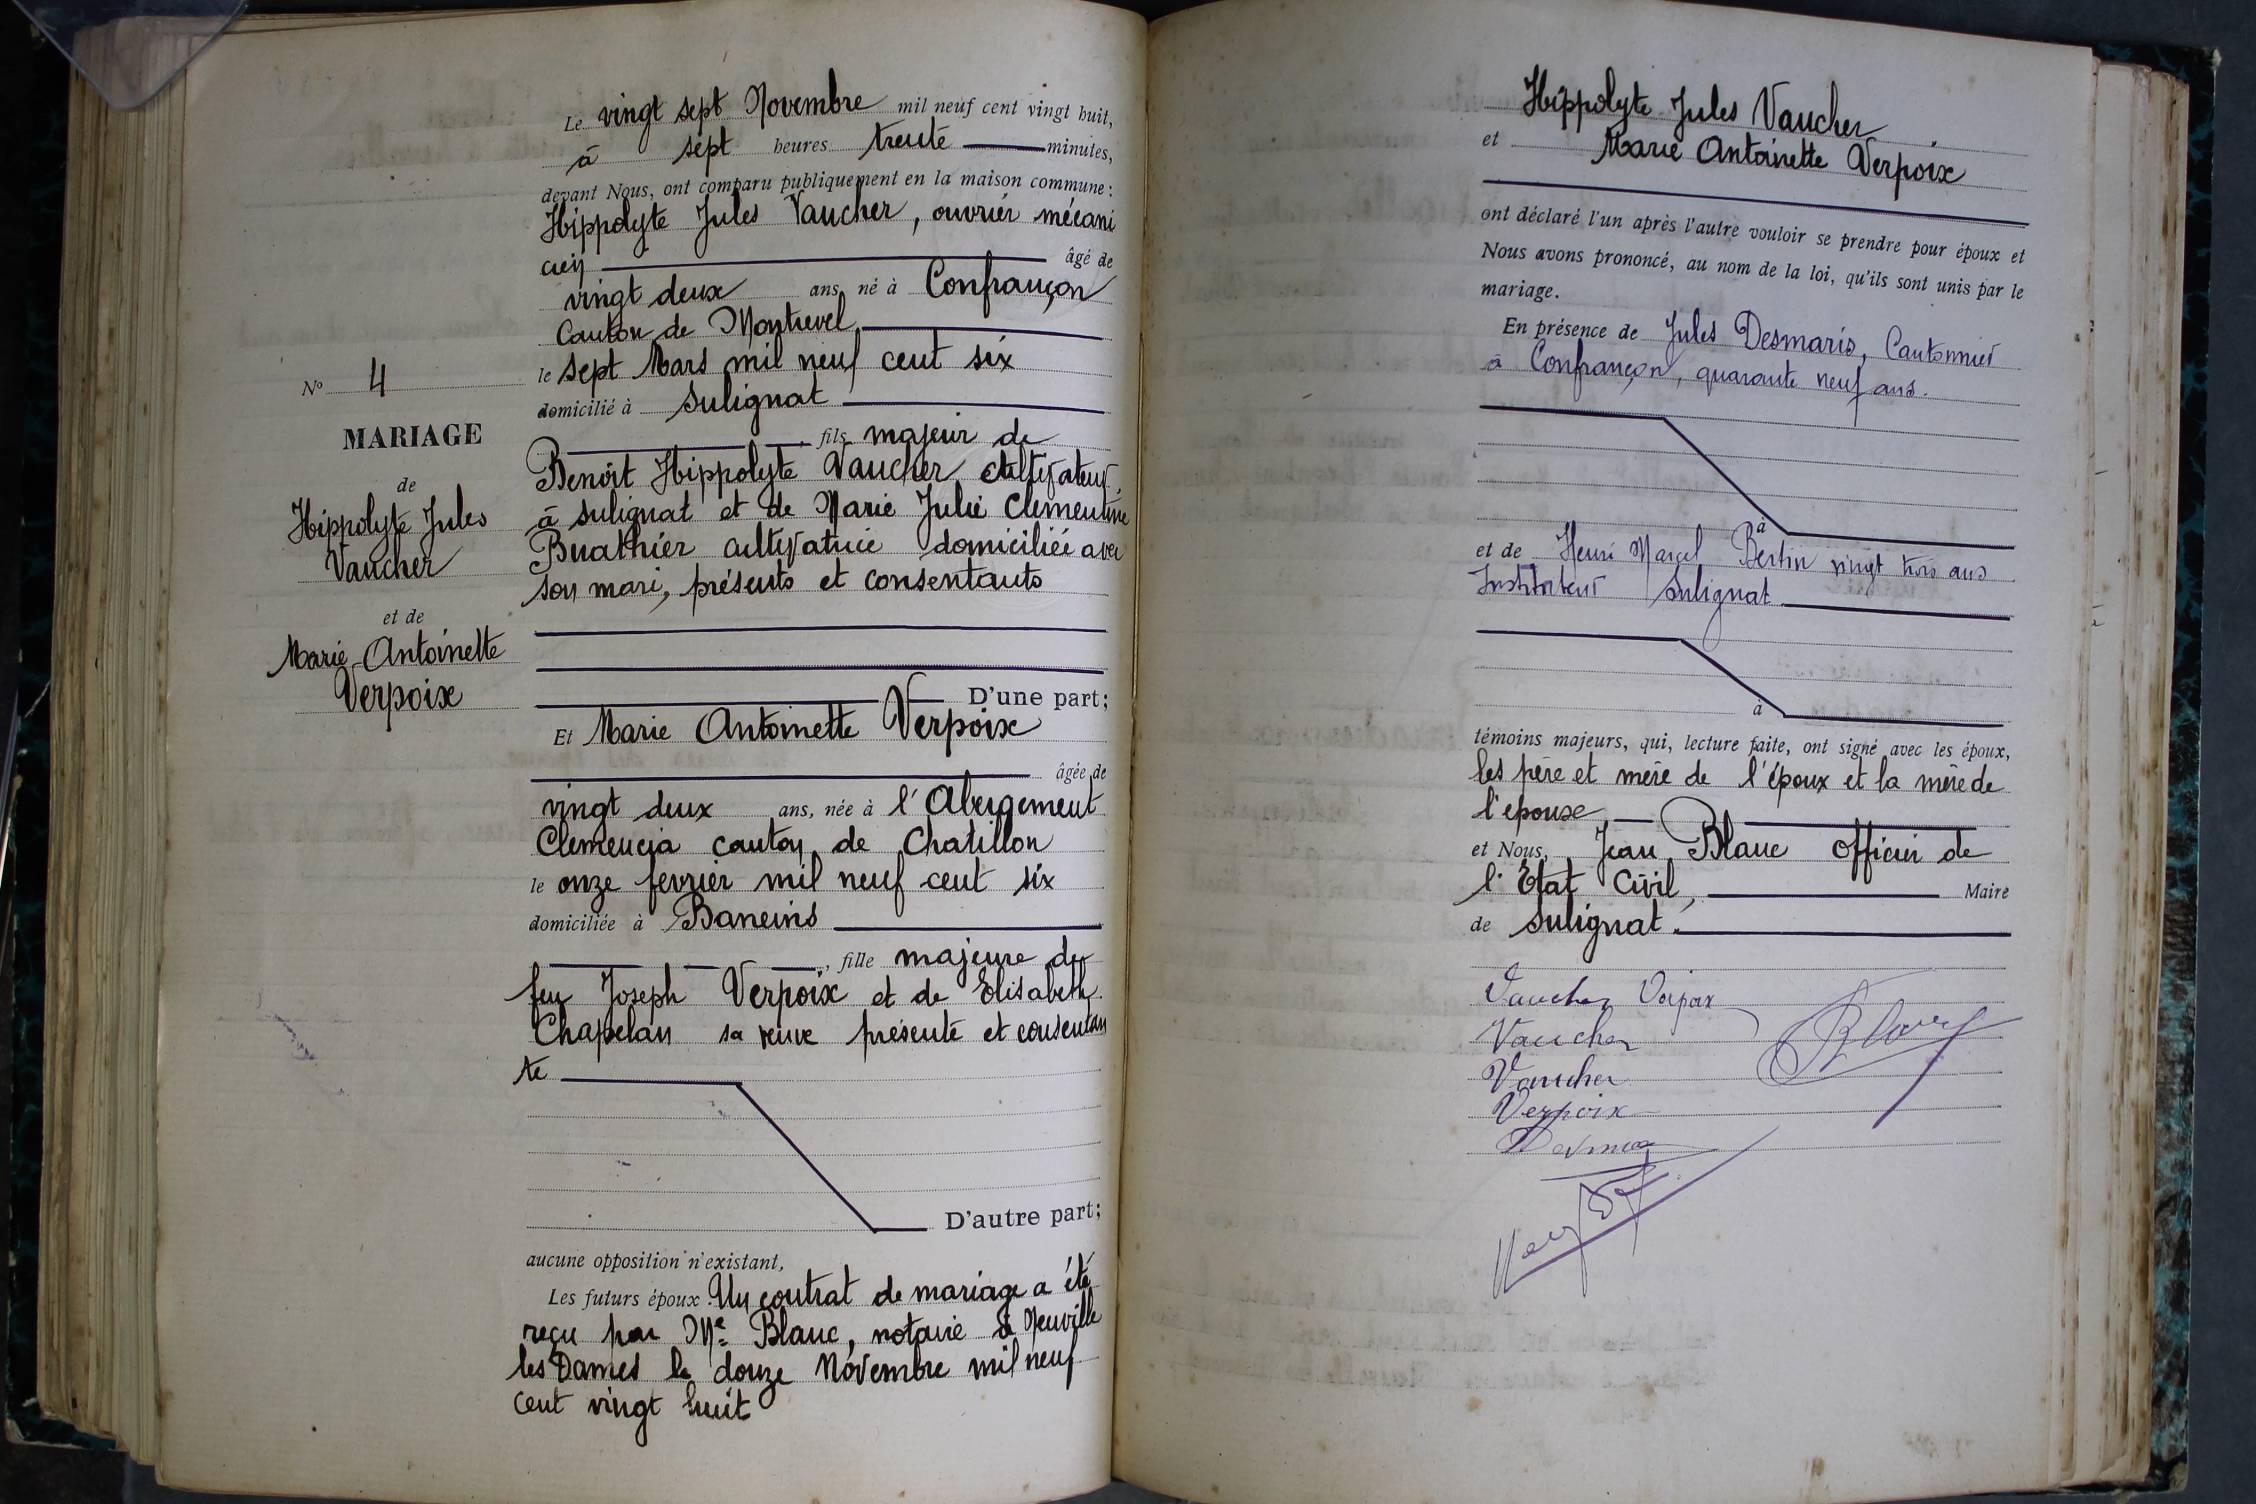 Le vingt sept Novembre mil neuf cent vingt huit,
à sept heures trente minutes,
devant Nous, ont comparu publiquement en la maison commune :
Hippolyte Jules Vaucher, ouvrier mécani
cien âgé de
vingt deux ans, né à Confrançon
Canton de Montrevel
le sept Mars mil neuf cent six
domicilié à Sulignat
, fils majeur de
Benoît Hippolyte Vaucher cultivateur
à Sulignat et de Marie Julie Clementine
Buathier cultivatrice domiciliée avec
son mari, présents et consentants
D'une part;
N° 4
MARIAGE
de
Hippolyte Jules
Vaucher
et de
Marie Antoinette
Verpoix
Et Marie Antoinette Verpoix
âgée de
vingt deux ans, née à l'Abergement
Clemencia canton de Chatillon
le onze fevrier mil neuf cent six
domiciliée à Baneins
, fille majeure de
feu Joseph Verpoix et de Elisabeth
Chapelan sa veuve présente et consentan
te
D'autre part;
aucune opposition n'existant,
Les futurs époux. Un contrat de mariage a été
reçu par Me Blanc, notaire à Neuville
les Dames le douze Novembre mil neuf
cent vingt huit
Hippolyte Jules Vaucher
et Marie Antoinette Verpoix
ont déclaré l'un après l'autre vouloir se prendre pour époux et
Nous avons prononcé, au nom de la loi, qu'ils sont unis par le
mariage.
En présence de Jules Desmaris, Cantonnier
à Confrançon, quarante neuf ans.
à
et de Henri Marcel Bertin vingt trois ans
Instituteur Sulignat
à
témoins majeurs, qui, lecture faite, ont signé avec les époux,
les père et mère de l'époux et la mère de
l'epouse
et Nous, Jean Blanc officier de
l'Etat Civil, Maire
de Sulignat.
Vaucher Verpoix
Vaucher Blanc
Vaucher
Verpoix